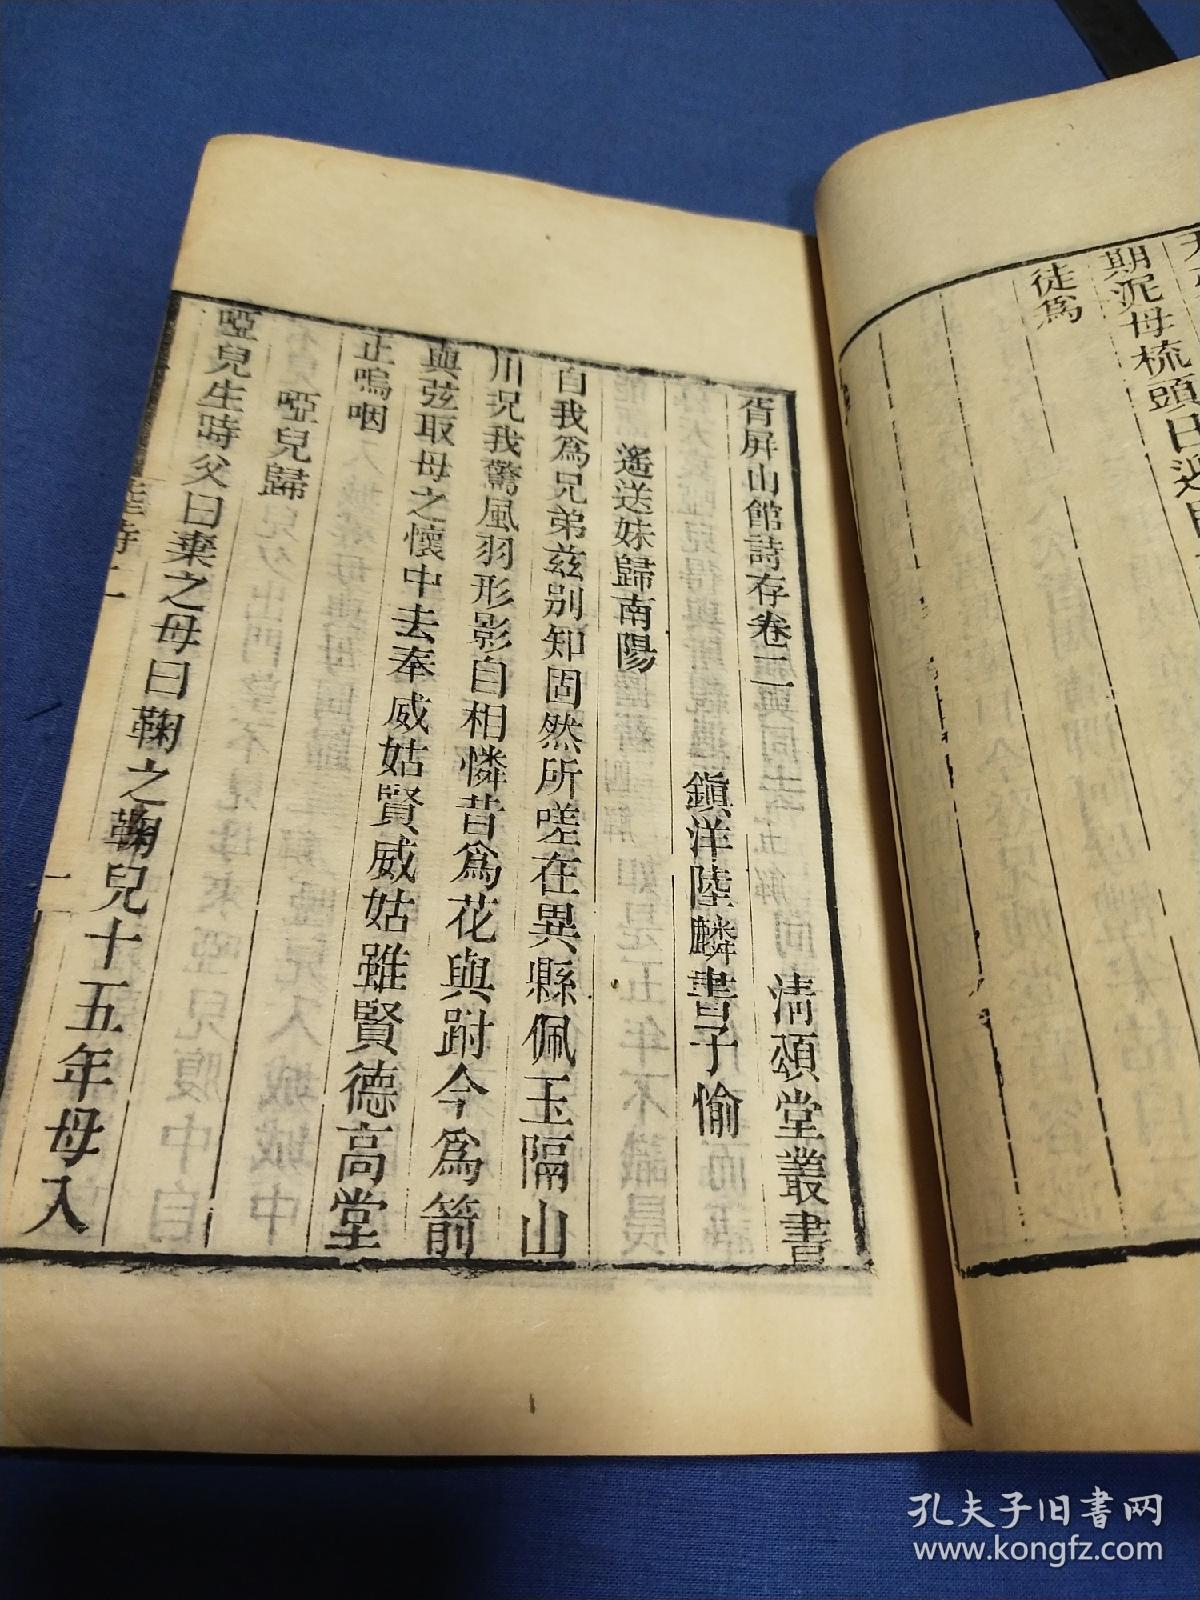 期泥母梳頭日
徒爲
胥屏山館詩存卷二 清頌堂叢書
鎮洋陸麟書子愉
遙送妹歸南陽
自我爲兄弟兹别知固然所嗟在異縣佩玉隔山
川況我驚風羽形影自相憐昔爲花與跗今爲箭
與弦取母之懷中去奉威姑賢威姑雖賢德高堂
正嗚咽
啞兒歸
啞兒生時父曰棄之母曰鞠之鞠兒十五年母入
孔夫子旧书网
www.kongfz.com